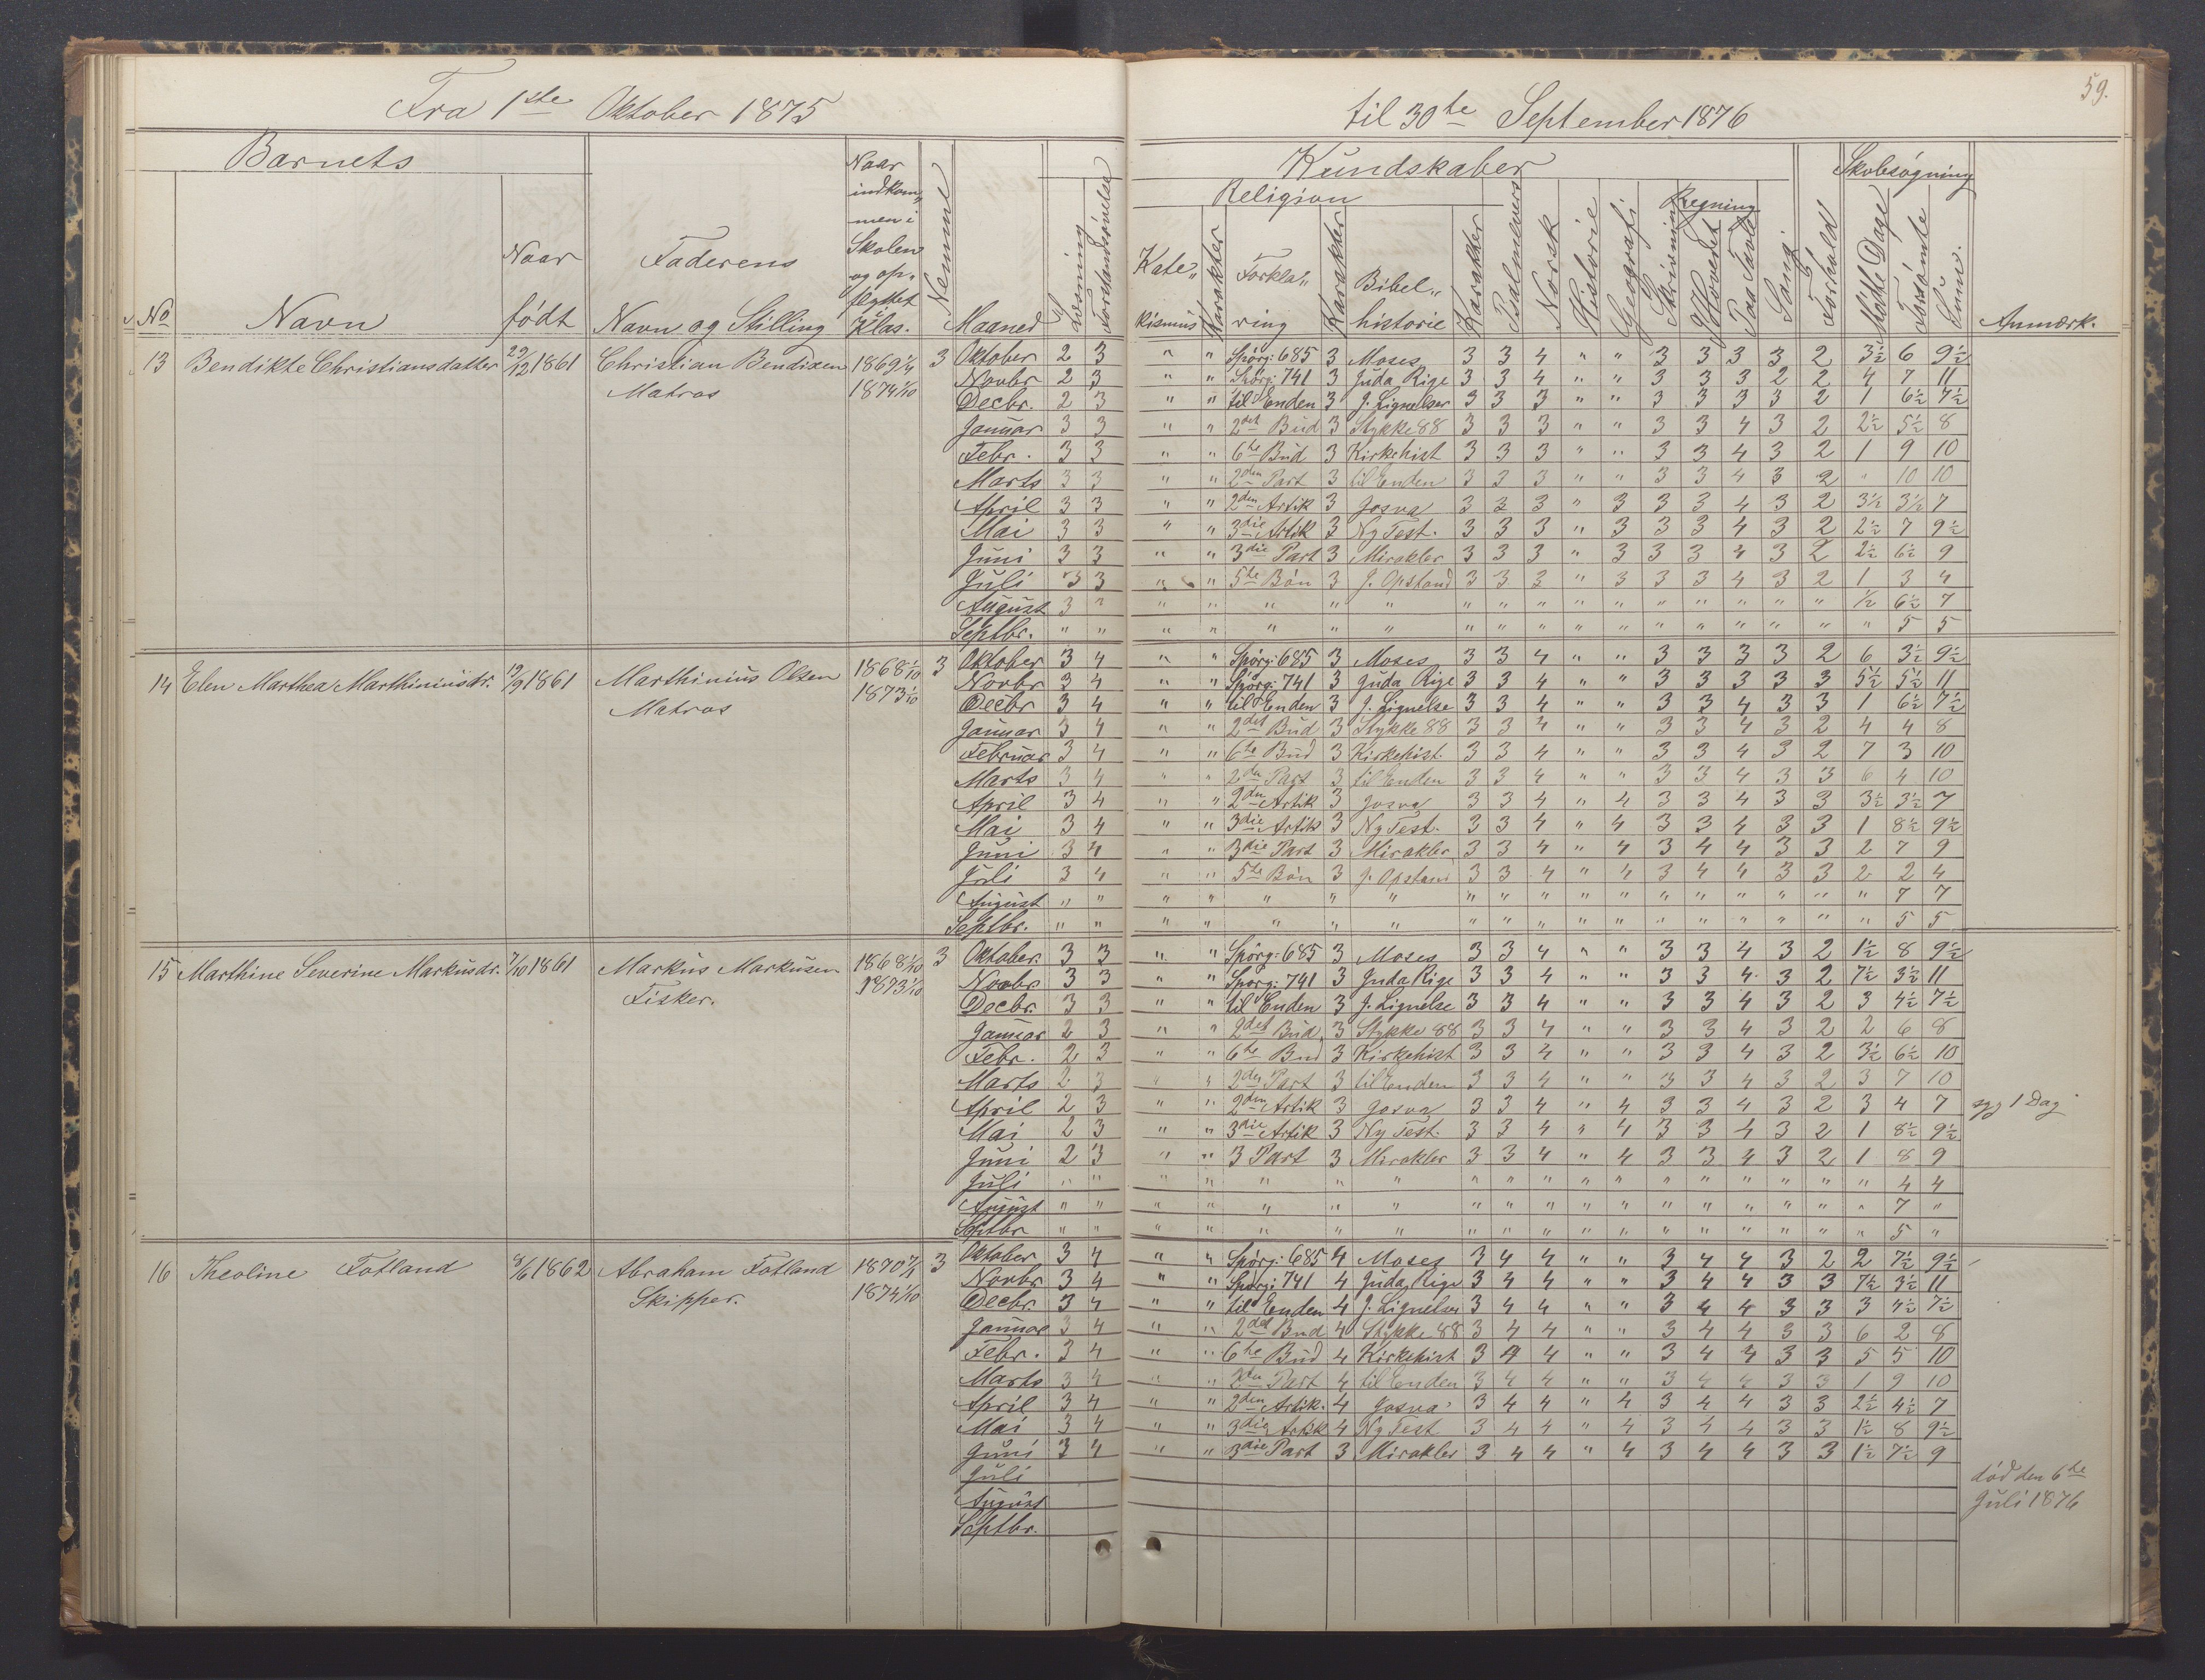 59.
Fra 1ste Oktober 1875 til 30te September 1876
Barnets Kundskaber Skolesøgning
Religion Regning
No Navn Naar født Faderens Navn og Stilling Naar indkommen i Skolen og opflyttet i Klas. Nemme Maaned Læsning Forstandsøvelse Katekismus Karakter Forklaring Karakter Bibelhistorie Karakter Psalmevers Norsk Historie Geografi Skrivning I Hovedet Paa Tavle Sang Forhold Mødte Dage Forsømte Sum. Anmærk.
13 Bendikte Christiansdatter 29/12 1861 Christian Bendixen 1869 1/4 3 Oktober 2 3 " " Spørg: 685 3 Moses 3 3 4 " " 3 3 3 3 2 3½ 6 9½
Matros 1874 1/10 Novbr 2 3 " " Spørg: 741 3 Juda Rige 3 3 4 " " 3 3 3 2 2 4 7 11
Decbr. 2 3 " " til Enden 3 J. Lignelser 3 3 3 " " 3 3 3 3 2 1 6½ 7½
Januar 3 3 " " 2det Bud 3 Stykke 88 3 3 3 " " 3 3 4 3 2 2½ 5½ 8
Febr. 3 3 " " 6te Bud 3 Kirkehist 3 3 3 " " 3 3 4 3 2 1 9 10
Marts 3 3 " " 2den Part 3 til Enden 3 3 3 " " 3 3 4 3 2 " 10 10
April 3 3 " " 2den Artik 3 Josva 3 3 3 " 3 3 3 4 3 2 3½ 3½ 7
Mai 3 3 " " 3die Artik 3 Ny Test. 3 3 3 " 3 3 3 4 3 2 2½ 7 9½
Juni 3 3 " " 3die Part 3 Mirakler 3 3 3 " 3 3 3 4 3 2 2½ 6½ 9
Juli 3 3 " " 5te Bøn 3 J. Opstand 3 3 3 " 3 3 3 4 3 2 1 3 4
August 3 " " " " " " " " " " " " " " " " ½ 6½ 7
Septbr. " " " " " " " " " " " " " " " " " " 5 5
14 Elen Marthea Marthiniusdr. 19/9 1861 Marthinius Olsen 1868 1/10 3 Oktober 3 4 " " Spørg: 685 3 Moses 3 3 4 " " 3 3 3 3 2 6 3½ 9½
Matros 1873 1/10 Novbr 3 4 " " Spørg: 741 3 Juda Rige 3 3 4 " " 3 3 3 3 3 5½ 5½ 11
Decbr 3 4 " " til Enden 3 J. Lignelse 3 3 4 " " 3 3 4 3 3 1 6½ 7½
Januar 3 4 " " 2det Bud 3 Stykke 88 3 3 4 " " 3 3 4 3 2 4 4 8
Februar 3 4 " " 6te Bud 3 Kirkehist. 3 3 4 " " 3 3 4 3 2 7 3 10
Marts 3 4 " " 2den Part 3 til Enden 3 3 4 " " 3 3 4 3 3 6 4 10
April 3 4 " " 2den Artik 3 Josva 3 3 4 " 4 3 3 4 3 3 3½ 3½ 7
Mai 3 4 " " 3die Artik 3 Ny Test. 3 3 4 " 4 3 3 4 3 3 1 8½ 9½
Juni 3 4 " " 3die Part 3 Mirakler 3 3 4 " 4 3 4 4 3 3 2 7 9
Juli 3 4 " " 5te Bøn 3 J. Opstand 3 3 4 " 4 3 4 4 3 3 2 2 4
August " " " " " " " " " " " " " " " " " " 7 7
Septbr. " " " " " " " " " " " " " " " " " " 5 5
15 Marthine Severine Markusdr. 7/10 1861 Markus Markusen 1868 1/10 3 Oktober. 3 3 " " Spørg: 685 3 Moses 3 3 4 " " 3 3 4 3 2 1½ 8 9½
Fisker. 1873 1/10 Novbr 3 3 " " Spørg: 741 3 Juda Rige 3 3 4 " " 3 3 4 3 2 7½ 3½ 11
Decbr. 3 3 " " til Enden 3 J. Lignelse 3 3 4 " " 3 3 4 3 2 3 4½ 7½
Januar 2 3 " " 2det Bud 3 Stykke 88 3 3 4 " " 3 3 4 3 2 2 6 8
Febr. 2 3 " " 6te Bud 3 Kirkehist 3 3 4 " " 3 3 4 3 2 3½ 6½ 10
Marts 2 3 " " 2den Part 3 til Enden 3 3 4 " " 3 3 4 3 2 3 7 10
April 2 3 " " 2den Artik 3 Josva 3 3 4 " 4 3 3 4 3 2 3 4 7 syg 1 Dag
Mai 2 3 " " 3die Artik 3 Ny Test. 3 3 4 " 4 3 3 4 3 2 1 8½ 9½
Juni 2 3 " " 3 Part 3 Mirakler 3 3 4 " 4 3 3 4 3 2 1 8 9
Juli " " " " " " " " " " " " " " " " " " 4 4
August " " " " " " " " " " " " " " " " " " 7 "
Septbr " " " " " " " " " " " " " " " " " " 5 "
16 Theoline Fotland 8/6 1862 Abraham Fotland 1870 3 Oktober 3 4 " " Spørg: 685 4 Moses 3 4 4 " " 3 4 4 3 2 2 7½ 9½
Skipper. 1874 1/10 Novbr 3 4 " " Spørg: 741 4 Juda Rige 3 4 4 " " 3 4 4 3 3 7½ 3½ 11
Decbr. 3 4 " " til Enden 4 J. Lignelser 3 4 4 " " 3 4 4 3 3 3 4½ 7½
Januar 3 4 " " 2det Bud 4 Stykke 88 3 4 4 " " 3 4 4 3 3 6 2 8
Febr. 3 4 " " 6te Bud 4 Kirkehist 3 4 4 " " 3 4 4 3 3 5 5 10
Marts 3 4 " " 2den Part 4 til Enden 3 4 4 " " 3 4 4 3 3 1 9 10
April 3 4 " " 2den Artik. 4 Josva 3 4 4 " 4 3 4 4 3 3 2½ 4½ 7
Mai 3 4 " " 3die Artik 4 Ny Test 3 4 4 " 4 3 4 4 3 3 1½ 8 9½
Juni 3 4 " " 3die Part 3 Mirakler 3 4 4 " 4 3 4 4 3 3 1½ 7½ 9
Juli død den 6te
August Juli 1876
Septbr.